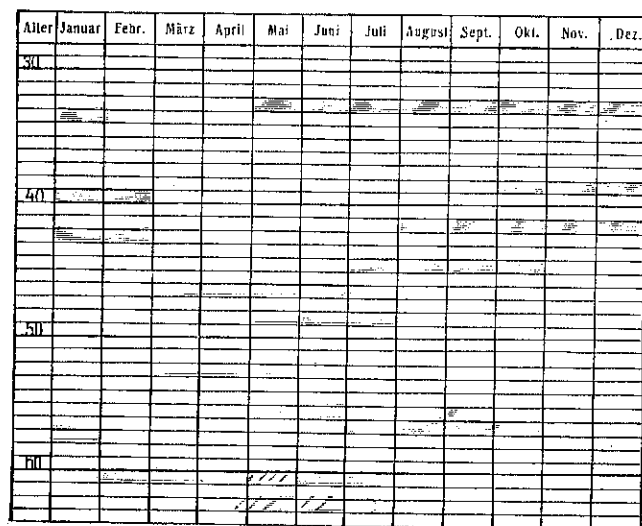 Alter Januar Febr. März April Mai Juni Juli August Sept. Okt. Nov. Dez.
30
40
50
60